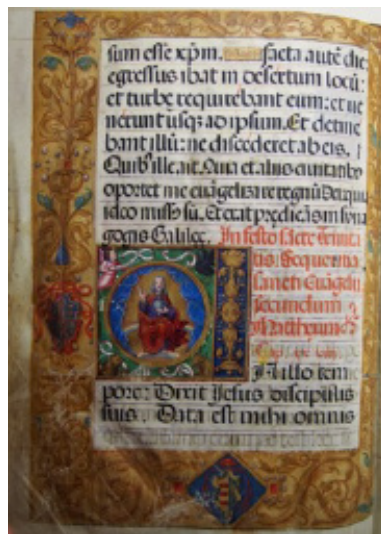 sum esse xpm. facta autē die
egressus ibat in desertum locū:
et turbe requirebant eum: et ue
nerunt usqȝ ad ipsum. Et detine
bant illū: ne discederet ab eis.
Quibꝰ ille ait. Quia et aliis ciuitatibꝰ
oportet me euāgelizare regnū Dei: quia
ideo missꝰ sū. Et erat prędicās in sina
gogis Galilee. In festo scāte Trinita
tis Sequentia
sancti Euāgelii
secundum
Mattheum
In illo tem
pore: Dixit Jesus discipulis
suis. Data est mihi omnis